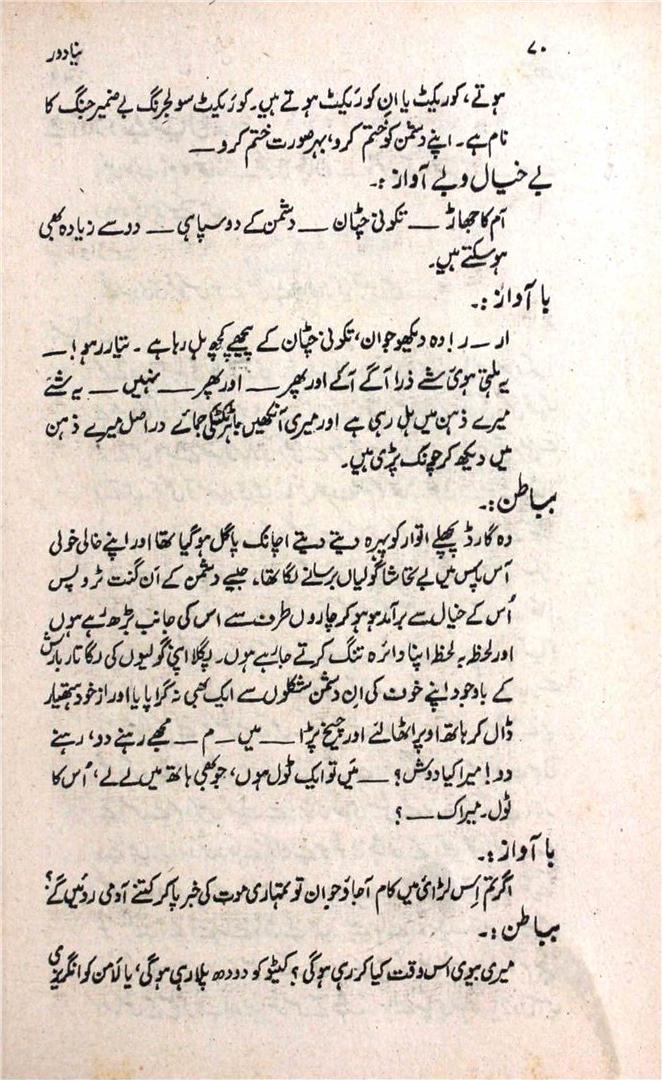 ۷۰
نیادور
ہوتے، کوریکٹ یا ان کوریکٹ ہوتے ہیں۔ کوریکٹ سولجرنگ بے ضمیر جنگ کا
نام ہے۔ اپنے دشمن کو ختم کرو، بہرصورت ختم کرو ــــ
بے خیال و بے آواز :۔
آم کا جھاڑ ــــ تکونی چٹان ــــ دشمن کے دو سپاہی ــــ دو سے زیادہ بھی
ہو سکتے ہیں۔
با آواز :۔
ار ــ ر! وہ دیکھو جوان، تکونی چٹان کے پیچھے کچھ ہل رہا ہے ۔ تیار رہو! ــــ
یہ ہلتی ہوئی شے ذرا آگے آکے اور پھر ــــ اور پھر ــــ نہیں ــــ یہ شے
میرے ذہن میں ہل رہی ہے اور میری آنکھیں باہر ٹکٹکی جمائے دراصل میرے ذہن
میں دیکھ کر چونک پڑی ہیں۔
بباطن :۔
وہ گارڈ پچھلے اتوار کو پہرہ دیتے دیتے اچانک پاگل ہو گیا تھا اور اپنے خالی خولی
آس پاس میں بے تحاشا گولیاں برسانے لگا تھا، جیسے دشمن کے اَن گنت ٹروپس
اُس کے خیال سے برآمد ہو ہو کر چاروں طرف سے اس کی جانب بڑھ رہے ہوں
اور لحظہ بہ لحظہ اپنا دائرہ تنگ کرتے جا رہے ہوں۔ پگلا اپنی گولیوں کی لگاتار بارش
کے باوجود اپنے خوف کی اِن دشمن شکلوں سے ایک بھی نہ گرا پایا اور از خود ہتھیار
ڈال کر ہاتھ اوپر اٹھالئے اور چیخ پڑا ــــ میں ــ م ــ مجھے رہنے دو، رہنے
دو! میرا کیا دوش؟ ــــ میں تو ایک ٹول ہوں، جو بھی ہاتھ میں لے لے، اُس کا
ٹول۔ میرا ک ــــ ؟
با آواز :۔
اگر تم اِس لڑائی میں کام آ جاؤ جوان تو تمہاری موت کی خبر پا کر کتنے آدمی روئیں گے؟
بباطن :۔
میری بیوی اس وقت کیا کر رہی ہوگی؟ کیٹو کو دودھ پلا رہی ہوگی، یا لامن کو انگریزی